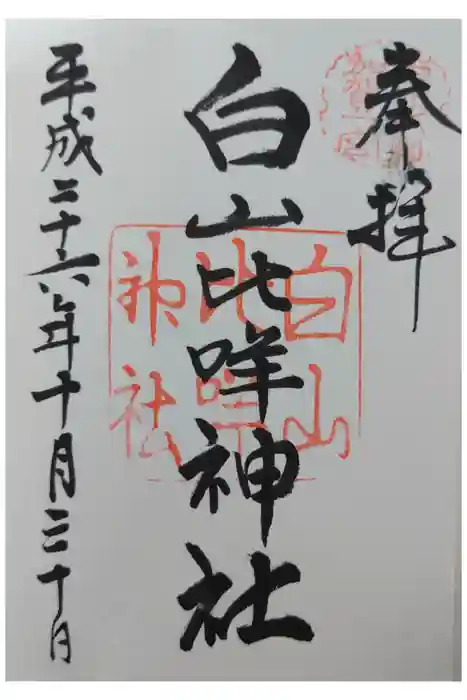 奉拝
白山比咩神社
平成二十六年十月三十日
白山
比咩
神社